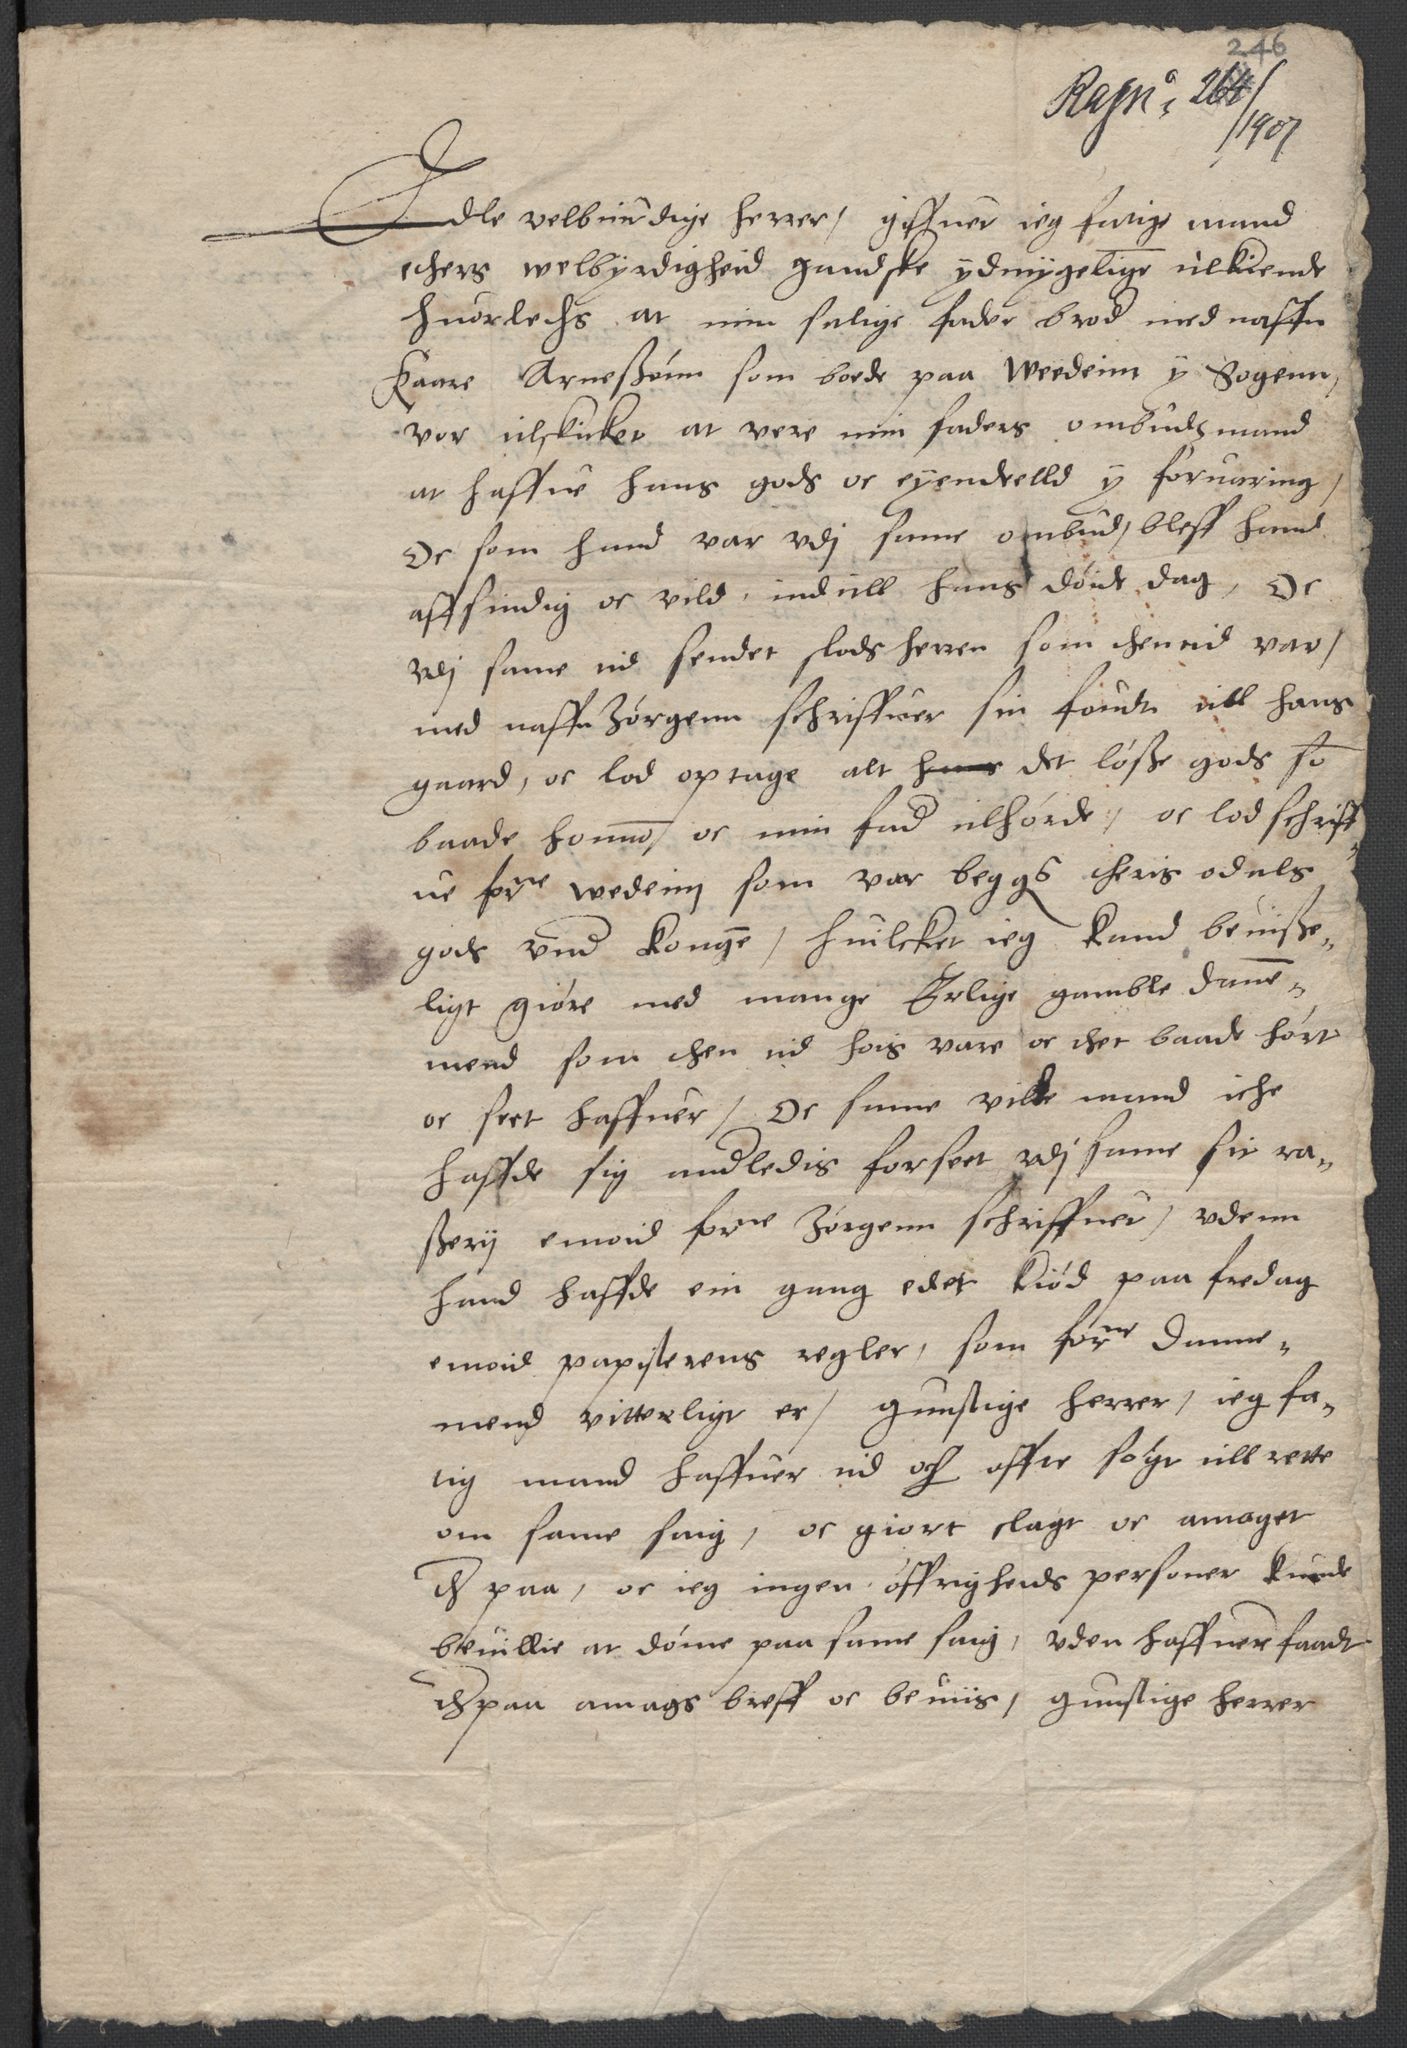 246
264/
1907
Edle velbiurdige herrer/ giffuer ieg fatige mand
ethers welbyrdigheid gandske ydmygelige tilkiende
huorlehs at min salige fader brod med naffn
Kaare Arneßønn som boede paa Weedeim y Sogenn,
vor tilskicket at vere min faders ombudzmand
at haffue hans gods oc eyendelld y foruaring,
Oc som hand var vdj same ombud, bleff hand
affsindig oc vild, indtill hans døide dag, Oc
vdj same tid sendet slodsherren som thentid var,
med naffn Jørgenn schriffuer sin foudt till hans
gaard, oc lod optage alt hans det løße gods so
baade honno, oc min fad tilhørde, oc lod schriff
ue forne wedeim som var beggis theris odals
gods vnd Konge, huilcket ieg kand beuiße„
ligt giøre med mange Erlige gamble dane„
mend som then tid hois vare oc thet baade hørt
oc seet haffuer/ Oc same vilde mand iche
haffde sig andledis forseet vdj same sit ra„
ßerij emoid forne Jørgenn schriffuer, vdenn
hand haffde ein gang edet kiød paa fredag
emoid papisterens regler, som forne danne„
mend vitterligt er/ gunstige herrer, ieg fa„
tig mand haffuer tid och offte søgt till rette
om same saig, oc giort clagt oc amaget
th paa, oc ieg ingen øffrigheids personer kunde
beuillie at døme paa same saig, vden haffuer faadt
thpaa amags breff oc beuiis, gunstige herrer